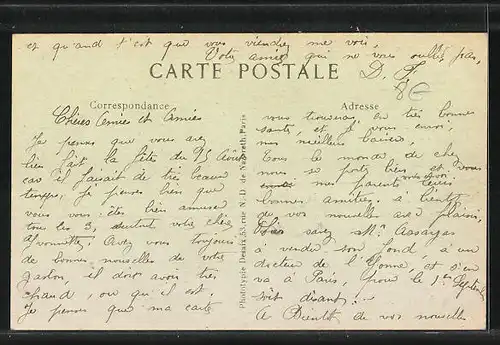 et quand t'est que vous viendrez me voir,
Votre amie qui ne vous oublie pas,
D. F.
CARTE POSTALE
8€
Correspondance
Chères Amie et Amies
Je pense que vous avez
bien fait la fête du 15 Août
car il faisait de très beau
temps, je pense bien que
vous vous êtes bien amusée
tous les 3, surtout votre chère
Yvonnette. Avez vous toujours
de bonnes nouvelles de votre
gaston, il doit avoir très
chaud, où qui il est
Je pense que ma carte
Phototypie Desaix 53, rue N.-D. de Nazareth, Paris
Adresse
vous trouvera en très bonne
santé, et je vous envoi,
mes meilleurs baisers,
Tous le monde de chez
nous se porte bien et vous
mes parents leurs
bonnes amitiés. a bientôt
de vos nouvelles avec plaisir,
savez Mr
a vendu son fond, a un
docteur de l'Yonne, et s'en
va à Paris, pour le 1er Septembre
soit disant :
A Bientôt de vos nouvelles